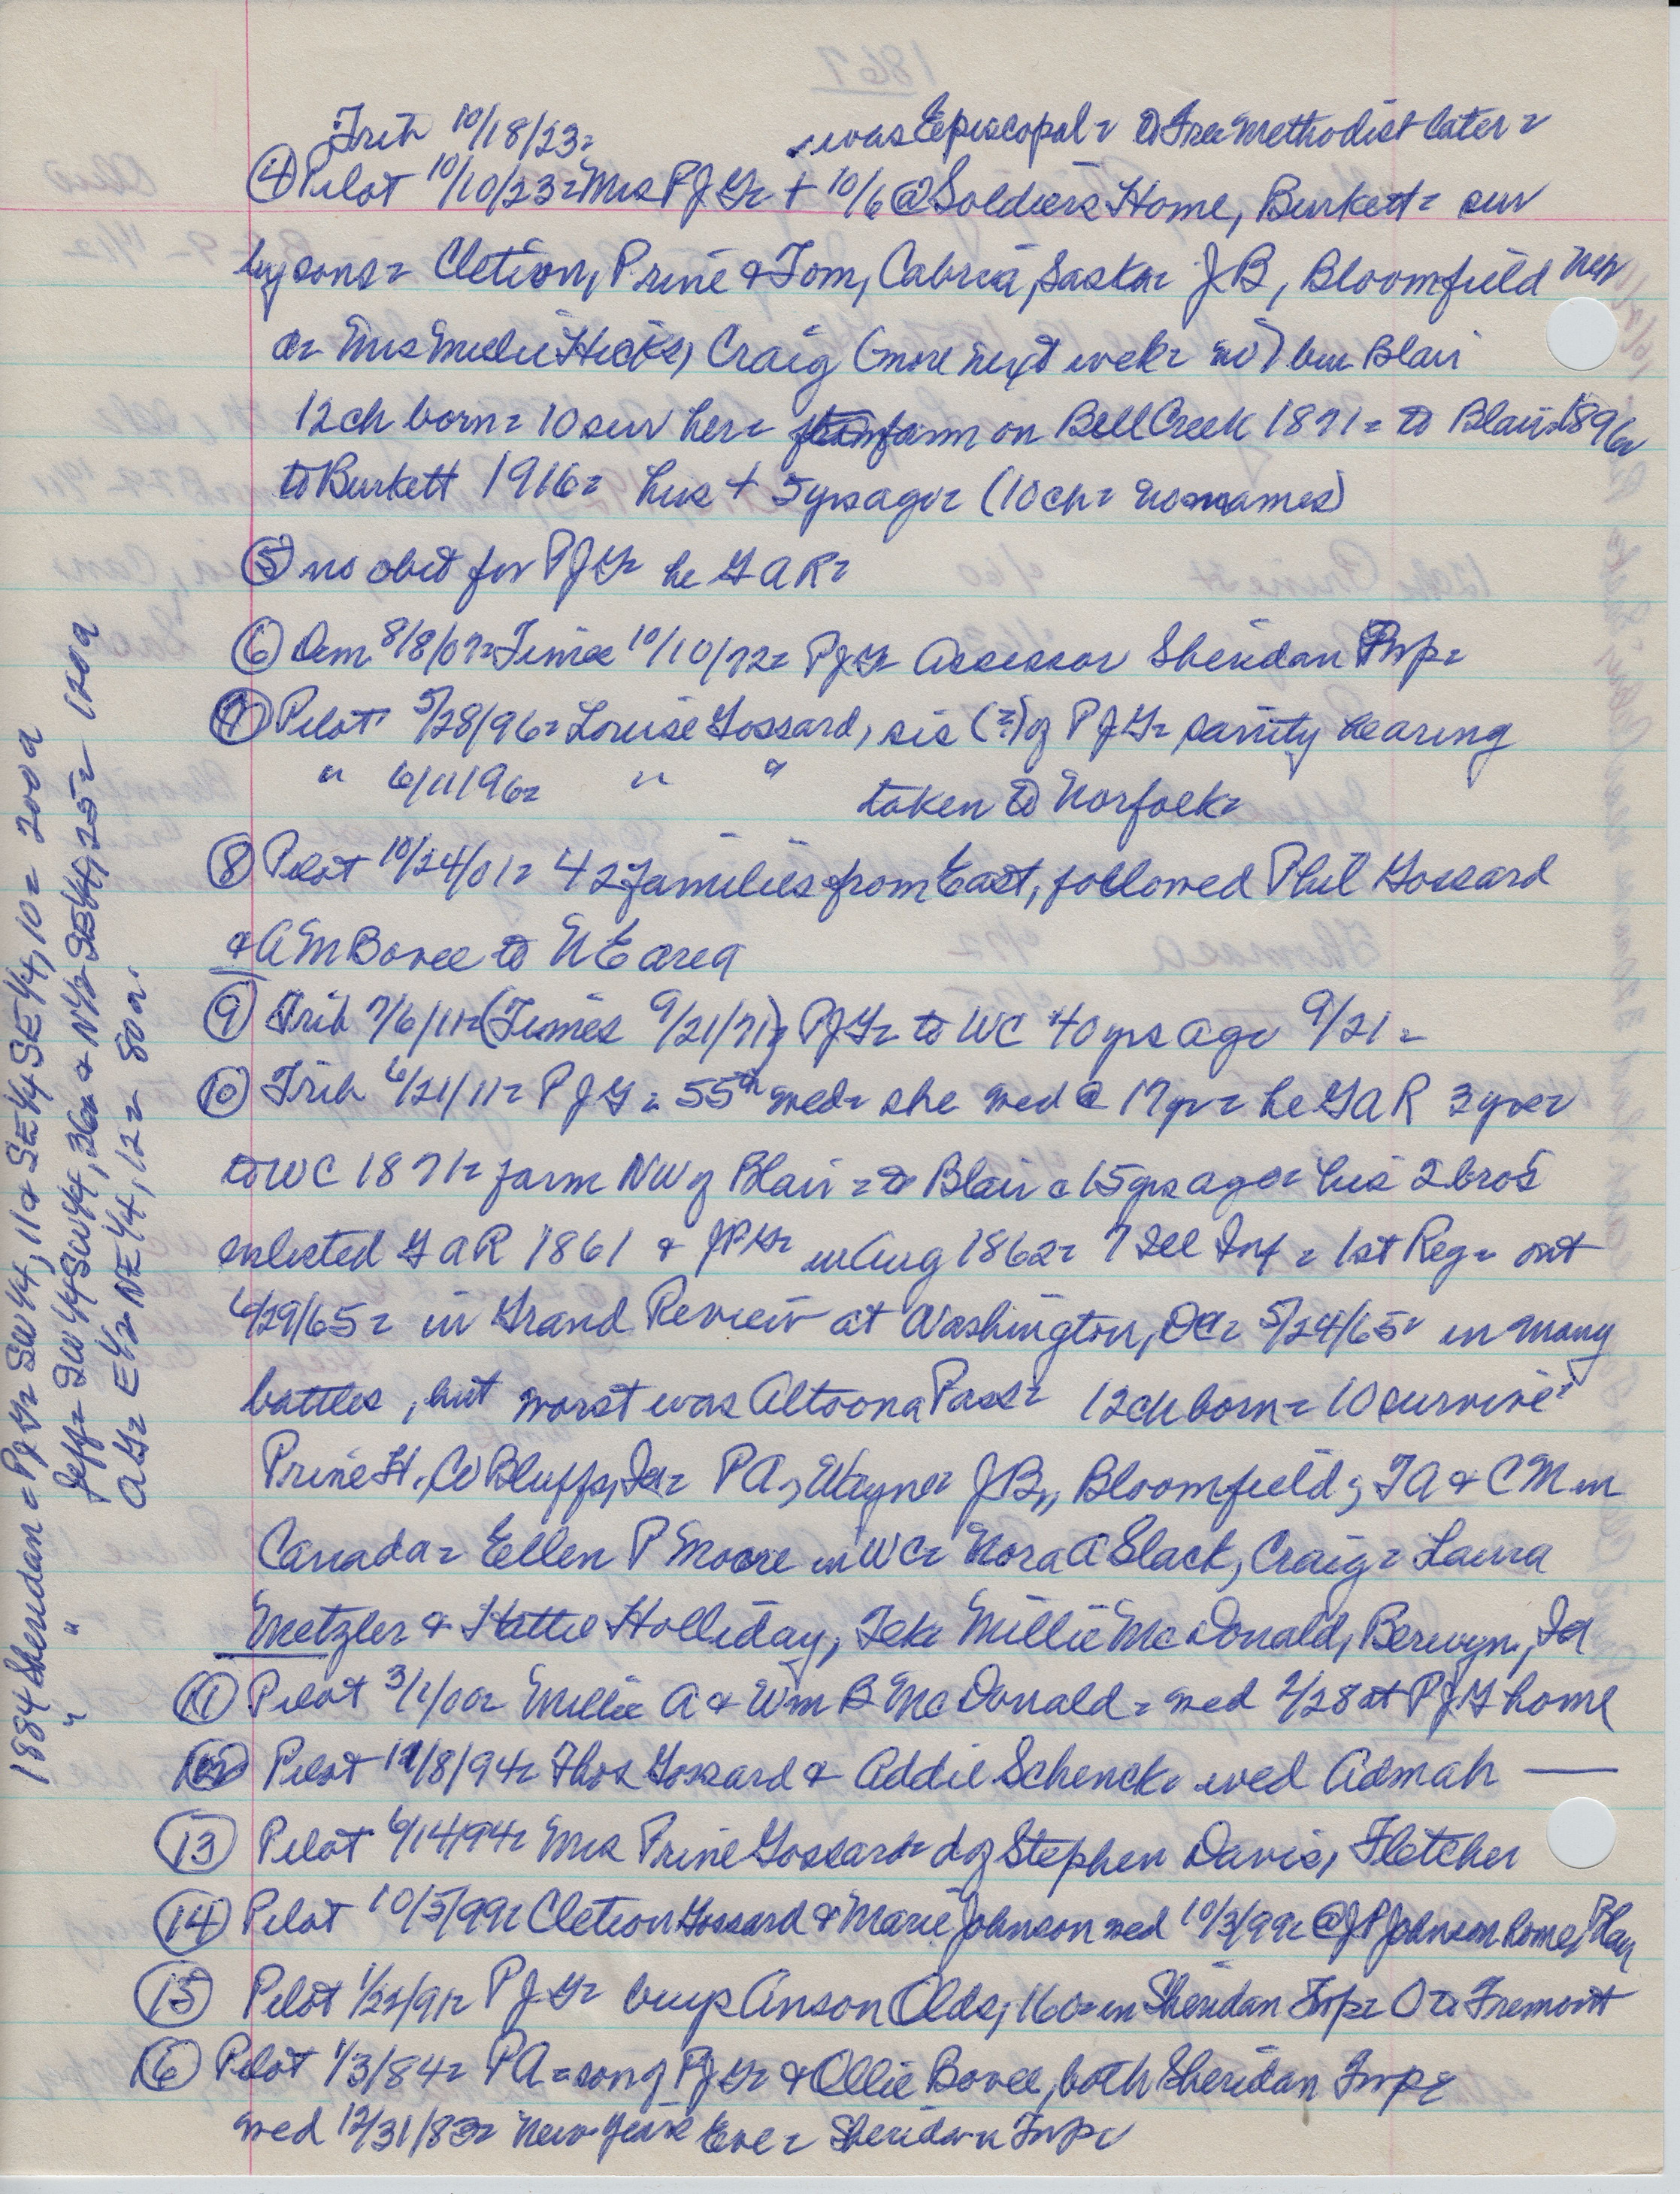 Trib 10/18/23= was Episcopal = to Free Methodist later =
④ Pilot 10/10/23= Mrs PJG= + 10/6 @ Soldiers Home, Burkett= sur
by sons= Cletion, Prine & Tom, Cabria, Saska= JB, Bloomfield Neb
d= Mrs Millie Hicks, Craig (more next week= no) bur Blair
12 ch born= 10 sur her= farm on Bell Creek 1871= to Blair 1896=
to Burkett 1916= hus + 5 yrs ago= (10 ch= no names)
⑤ no obit for PJG= he GAR=
⑥ Dem 8/8/07= Times 10/10/72= PJG= Assessor Sheridan Twp=
⑦ Pilot 5/28/96= Louise Gossard, sis (?) of PJG= sanity hearing
" 6/11/96= " " taken to Norfolk=
⑧ Pilot 10/24/01= 42 families from East, followed Phil Gossard
& AM Bovee to NE area
⑨ Trib 7/6/11= (Times 9/21/71) PJG= to WC 40 yrs ago 9/21=
⑩ Trib 6/21/11= PJG= 55th wed= she wed @ 17 yr= he GAR 3 yrs=
to WC 1871= farm NW of Blair = to Blair c 15 yrs ago= his 2 bros
enlisted GAR 1861 & JPG= in Aug 1862= 7 Ill Inf = 1st Reg= out
6/29/65= in Grand Review at Washington, DC= 5/24/65= in many
battles, but worst was Altoona Pass= 12 ch born= 10 survive=
Prine H, Co Bluffs, Ia= PA, Wayne= JB, Bloomfield; TA & CM in
Canada= Ellen P Moore in WC= Nora A Slack, Craig= Laura
Metzler & Hattie Holliday, Tek= Millie McDonald, Berwyn, Ia
⑪ Pilot 3/1/00= Millie A & Wm B McDonald= wed 2/28 at PJG home
⑫ Pilot 11/8/94= Thos Gossard & Addie Schenck= wed Admah —
⑬ Pilot 6/14/94= Mrs Prine Gossard= d of Stephen Davis, Fletcher
⑭ Pilot 10/5/99= Cletion Gossard & Marie Johnson wed 10/3/99= @ JP Johnson home, Blair
⑮ Pilot 1/22/91= PJG= buys Anson Olds, 160= in Sheridan Twp= O to Fremont
⑯ Pilot 1/3/84= PA= son of PJG= & Ollie Bovee, both Sheridan Twp=
wed 12/31/83= New Years Eve= Sheridan Twp=
1884 Sheridan = PJG= SW 1/4, 11 & SE 1/4 SE 1/4, 10= 200a
" " Jeff= SW 1/4 SW 1/4, 36= & N 1/2 SE 1/4, 25= 120a
" AG= E 1/2 NE 1/4, 12= 80a.